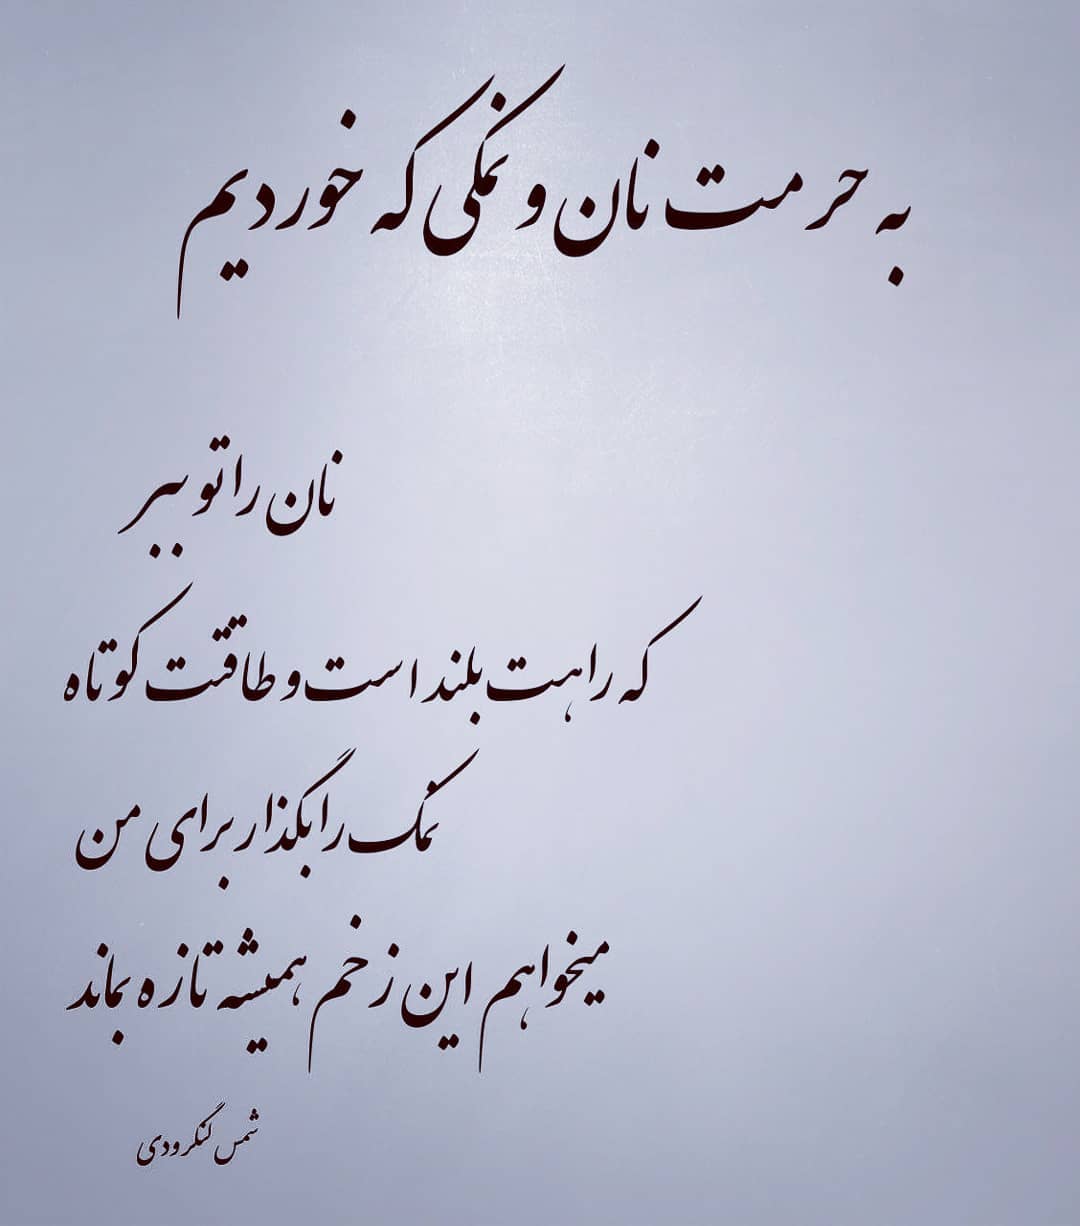 به حرمت نان و نمکی که خوردیم
نان را تو ببر
که راهت بلند است و طاقتت کوتاه
نمک را بگذار برای من
میخواهم این زخم همیشه تازه بماند
شمس لنگرودی